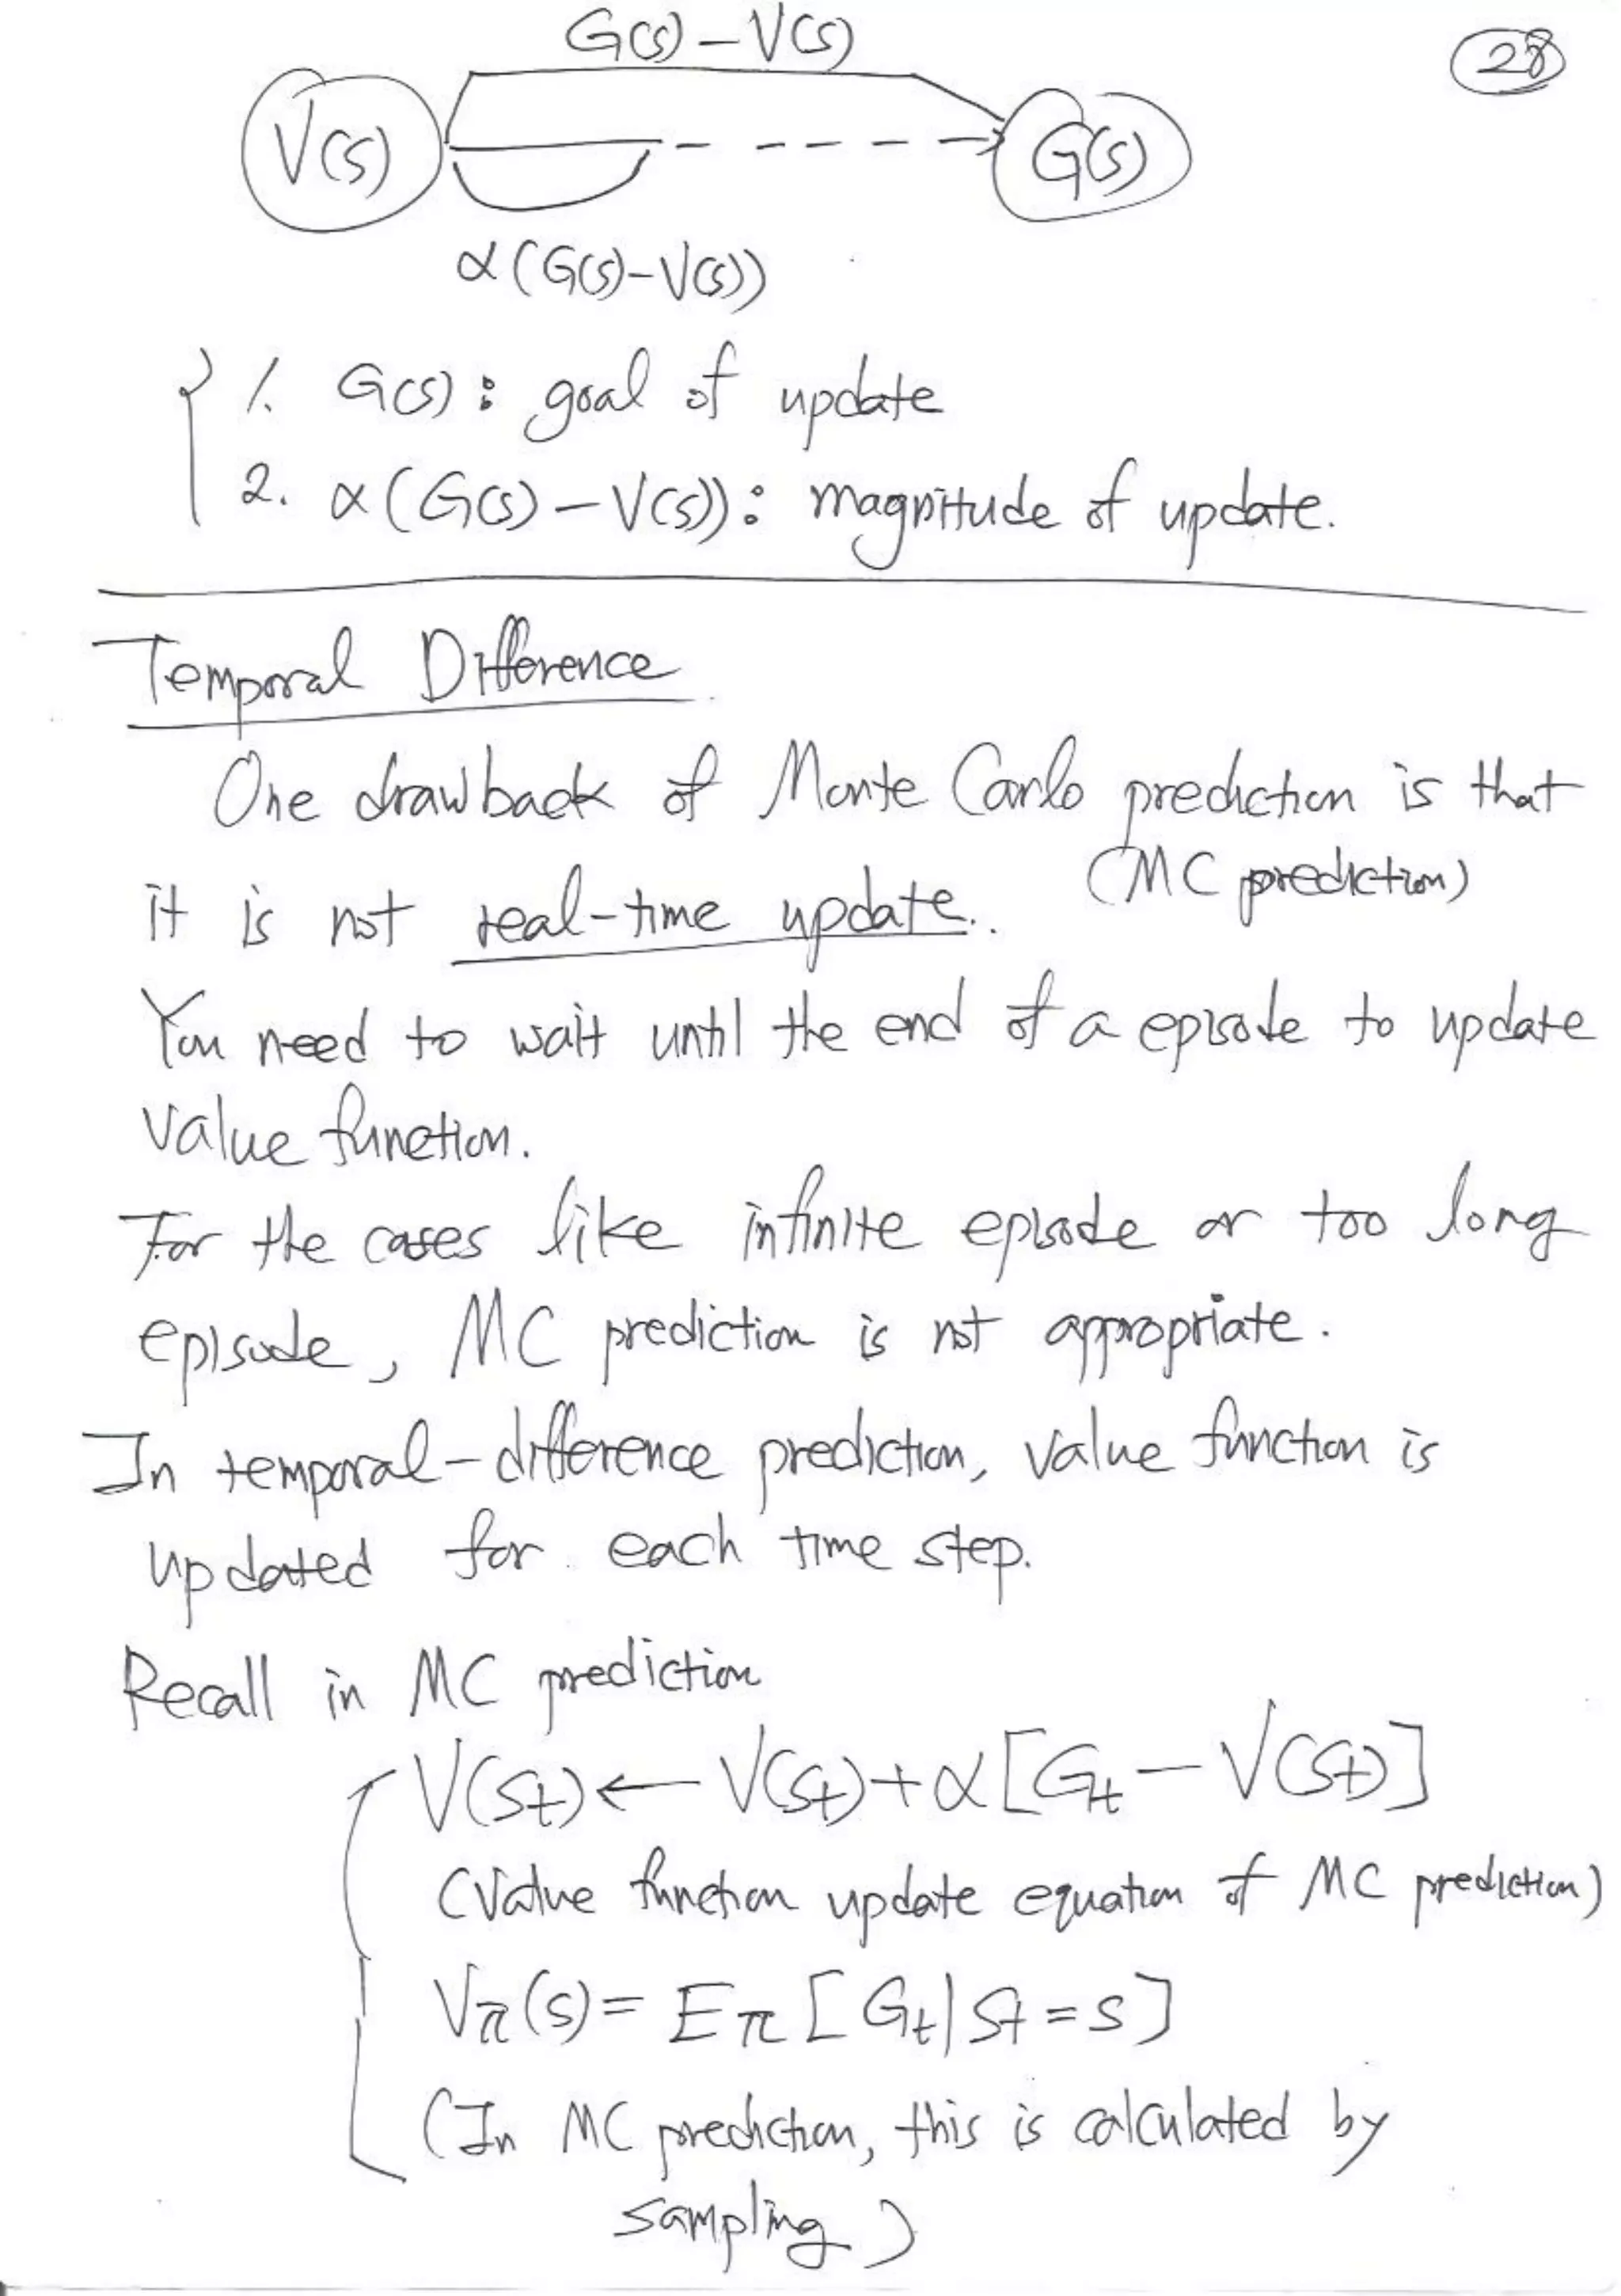 G(s) - V(s)
28
V(s)
G(s)
α(G(s)-V(s))
1. G(s): goal of update
2. α(G(s) - V(s)): magnitude of update.
Temporal Difference
One drawback of Monte Carlo prediction is that
(MC prediction)
it is not real-time update.
You need to wait until the end of a episode to update
value function.
For the cases like infinite episode or too long
episode, MC prediction is not appropriate.
In temporal-difference prediction, value function is
updated for each time step.
Recall in MC prediction
V(St) ← V(St) + α[Gt - V(St)]
(Value function update equation of MC prediction)
Vπ(s) = Eπ[Gt|St = s]
(In MC prediction, this is calculated by
sampling)